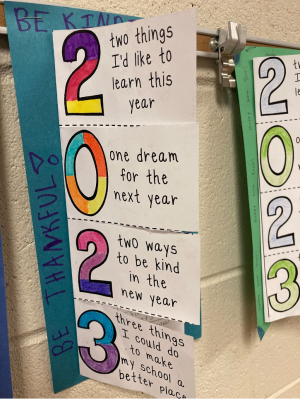 BE KIND
BE THANKFUL!
2
two things
I'd like to
learn this
year
0
one dream
for the
next year
2
two ways
to be kind
in the
new year
3
three things
I could do
to make
my school a
better place
2
0
2
3